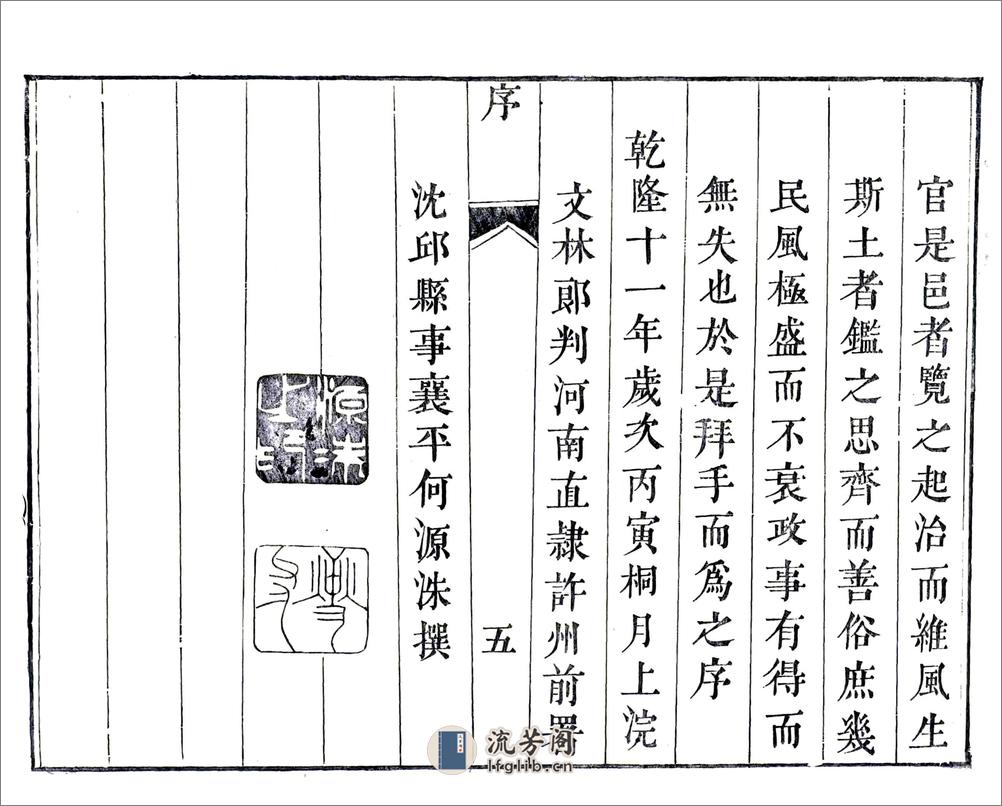 官是邑者覽之起治而維風生
斯土者鑑之思齊而善俗庶幾
民風極盛而不衰政事有得而
無失也於是拜手而爲之序
乾隆十一年歲次丙寅桐月上浣
文林郎判河南直隷許州前署
序
五
沈邱縣事襄平何源洙撰
源洙
流芳阁
lfglib.cn